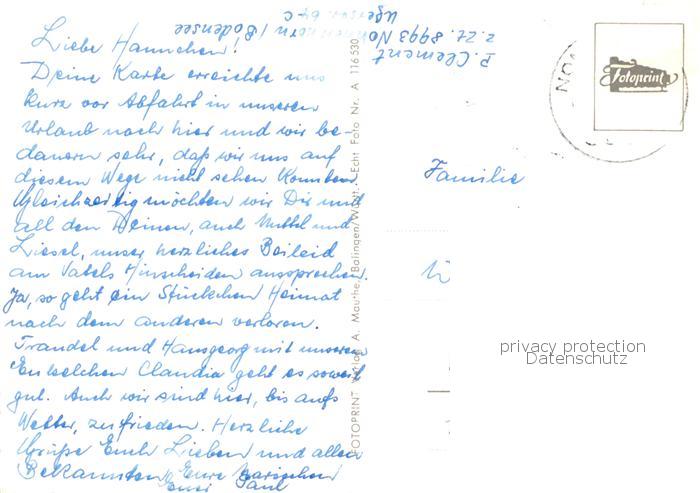 Liebe Hannchen!
Deine Karte erreichte uns
kurz vor Abfahrt in unseren
Urlaub nach hier und wir be-
dauern sehr, daß wir uns auf
diesem Wege nicht sehen konnten
Gleichzeitig möchten wir Dir und
all den Deinen, auch Muttel und
Liesel, unser herzliches Beileid
am Vatels Hinscheiden aussprechen.
Ja, so geht ein Stückchen Heimat
nach dem anderen verloren.
Traudel und Hansgeorg mit unserem
Enkelchen Claudia geht es soweit
gut. Auch wir sind hier, bis aufs
Wetter, zufrieden. Herzliche
Grüße Euch Lieben und allen
Bekannten Eure Mariechen
Euer Paul
P. Clement
z. Zt. 8993 Nonnenhorn / Bodensee
FOTOPRINT Verlag A. Mauthe, Balingen/Württ. Echt Foto Nr. A 116 530
Fotoprint
NON
Familie
privacy protection
Datenschutz